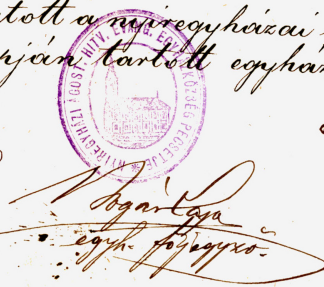 tott a nyiregyházai
pján tartott egyhá
NYIREGYHÁZI ÁGOST. HITV. EVANG. EGYHÁZKÖZSÉG PECSÉTJE
egyh. főjegyző.